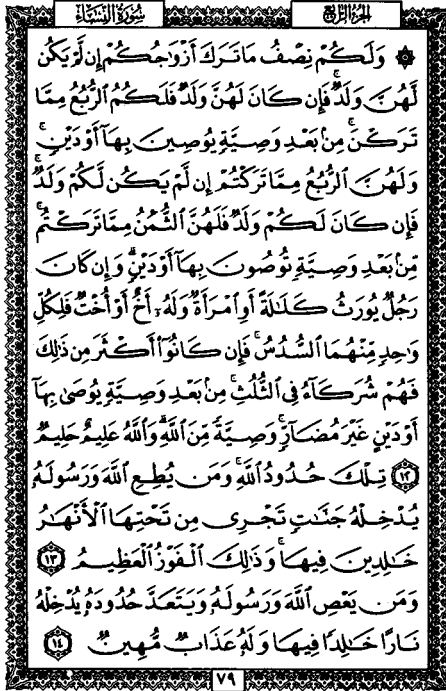 سُورَةُ النِّسَاءِ
الجُزْءُ الرَّابِعُ
۞ وَلَكُمْ نِصْفُ مَا تَرَكَ أَزْوَاجُكُمْ إِن لَّمْ يَكُن
لَّهُنَّ وَلَدٌ ۚ فَإِن كَانَ لَهُنَّ وَلَدٌ فَلَكُمُ الرُّبُعُ مِمَّا
تَرَكْنَ ۚ مِنۢ بَعْدِ وَصِيَّةٍ يُوصِينَ بِهَآ أَوْ دَيْنٍ ۚ
وَلَهُنَّ الرُّبُعُ مِمَّا تَرَكْتُمْ إِن لَّمْ يَكُن لَّكُمْ وَلَدٌ ۚ
فَإِن كَانَ لَكُمْ وَلَدٌ فَلَهُنَّ الثُّمُنُ مِمَّا تَرَكْتُم ۚ
مِّنۢ بَعْدِ وَصِيَّةٍ تُوصُونَ بِهَآ أَوْ دَيْنٍ ۗ وَإِن كَانَ
رَجُلٌ يُورَثُ كَلَٰلَةً أَوِ ٱمْرَأَةٌ وَلَهُۥٓ أَخٌ أَوْ أُخْتٌ فَلِكُلِّ
وَٰحِدٍ مِّنْهُمَا السُّدُسُ ۚ فَإِن كَانُوٓا۟ أَكْثَرَ مِن ذَٰلِكَ
فَهُمْ شُرَكَآءُ فِى الثُّلُثِ ۚ مِنۢ بَعْدِ وَصِيَّةٍ يُوصَىٰ بِهَآ
أَوْ دَيْنٍ غَيْرَ مُضَآرٍّ ۚ وَصِيَّةً مِّنَ ٱللَّهِ ۗ وَٱللَّهُ عَلِيمٌ حَلِيمٌ
١٢ تِلْكَ حُدُودُ ٱللَّهِ ۚ وَمَن يُطِعِ ٱللَّهَ وَرَسُولَهُۥ
يُدْخِلْهُ جَنَّٰتٍ تَجْرِى مِن تَحْتِهَا ٱلْأَنْهَٰرُ
خَٰلِدِينَ فِيهَا ۚ وَذَٰلِكَ ٱلْفَوْزُ ٱلْعَظِيمُ ١٣
وَمَن يَعْصِ ٱللَّهَ وَرَسُولَهُۥ وَيَتَعَدَّ حُدُودَهُۥ يُدْخِلْهُ
نَارًا خَٰلِدًا فِيهَا وَلَهُۥ عَذَابٌ مُّهِينٌ ١٤
٧٩